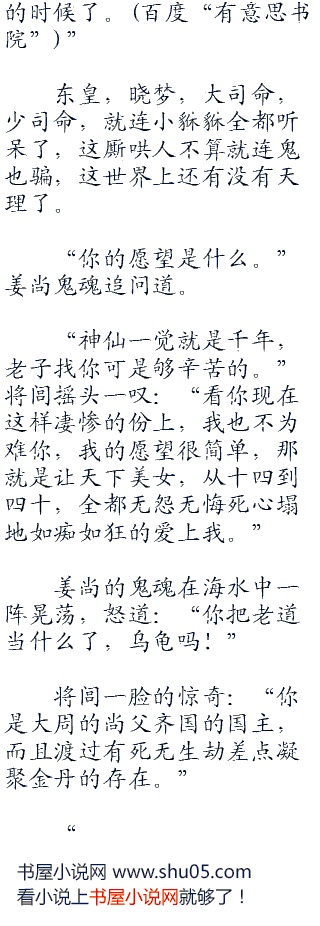 的时候了。(百度“有意思书
院”)”
东皇，晓梦，大司命，
少司命，就连小貅貅全都听
呆了，这厮哄人不算就连鬼
也骗，这世界上还有没有天
理了。
“你的愿望是什么。”
姜尚鬼魂追问道。
“神仙一觉就是千年，
老子找你可是够辛苦的。”
将闾摇头一叹：“看你现在
这样凄惨的份上，我也不为
难你，我的愿望很简单，那
就是让天下美女，从十四到
四十，全都无怨无悔死心塌
地如痴如狂的爱上我。”
姜尚的鬼魂在海水中一
阵晃荡，怒道：“你把老道
当什么了，乌龟吗！”
将闾一脸的惊奇：“你
是大周的尚父齐国的国主，
而且渡过有死无生劫差点凝
聚金丹的存在。”
“
书屋小说网 www.shu05.com
看小说上书屋小说网就够了！